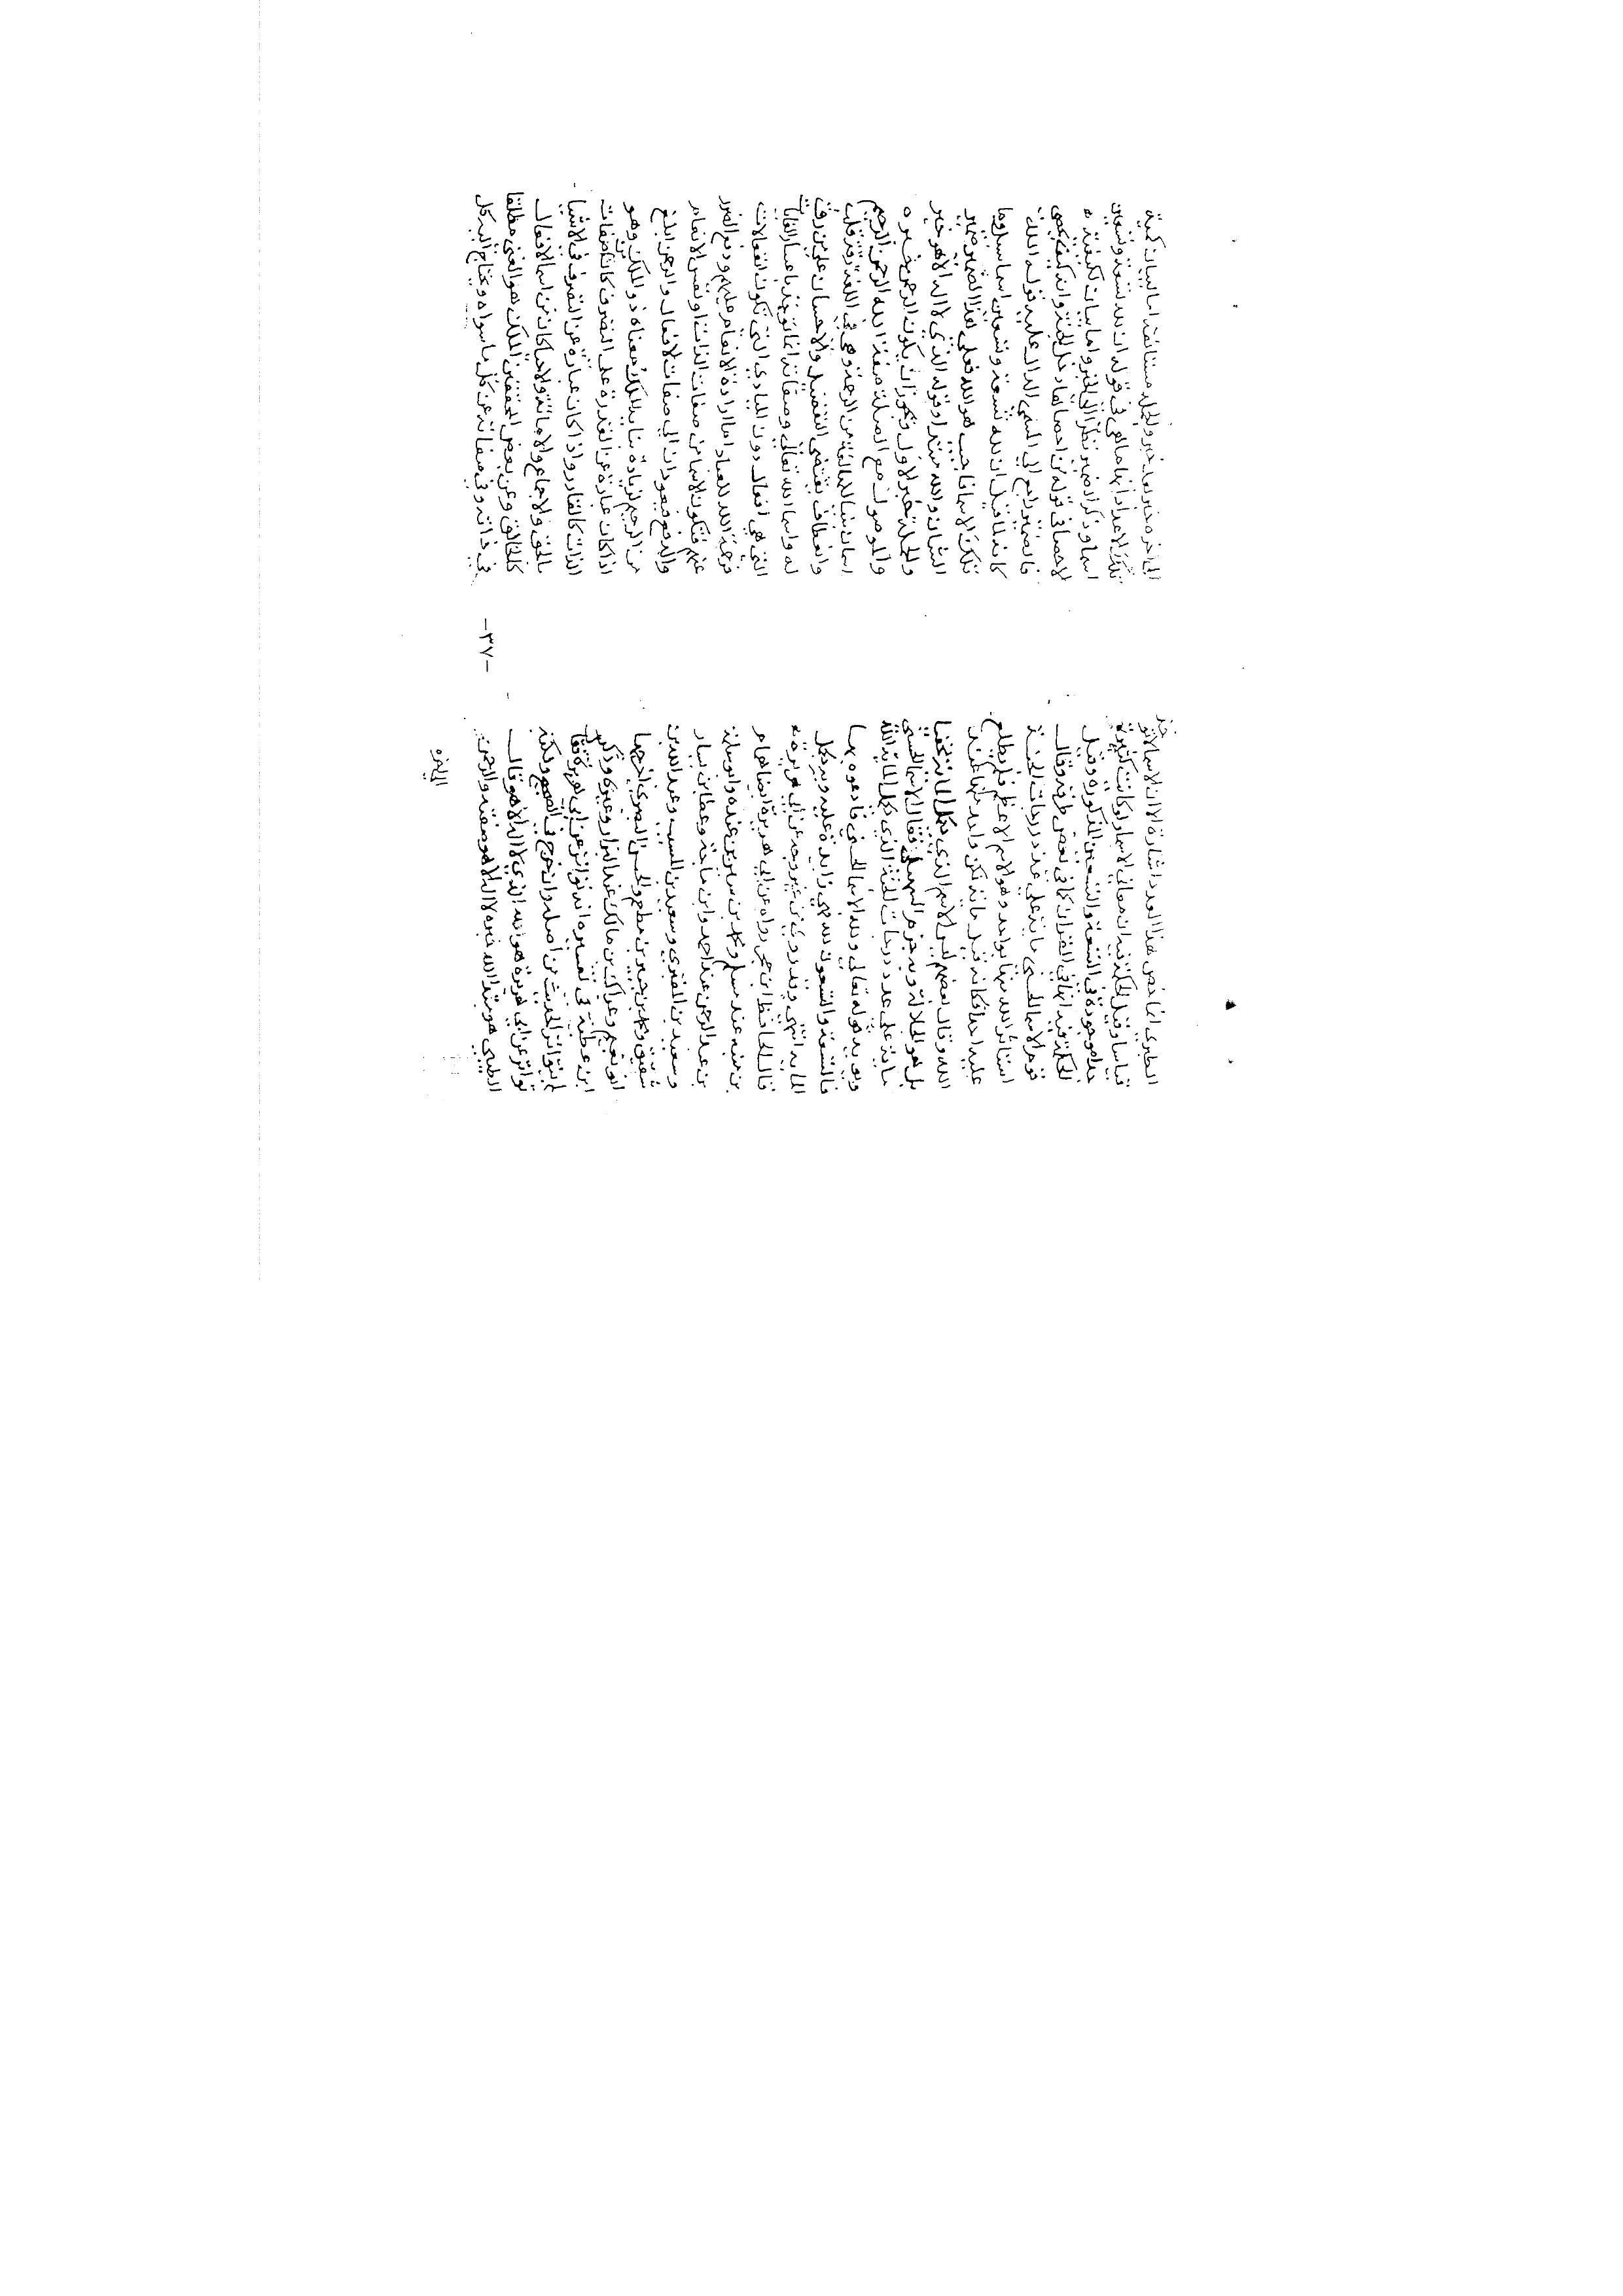 الطيبي انما خص هذا العدد اشارة الا ان الاسما لا توخذ
قياسا وقيل الحكمة فيه ان معاني الاسما ولو كانت كثيرة
جدا موجودة في التسعة والتسعين المذكورة وقيل
الحكمة فيه انها في القران كما في بعض طرقه وقال
قوم الاسما الحسنى ماية على عدد درجات الجنة
استاثر الله منها بواحد وهو الاسم الاعظم فلم يطلع
عليه احدا فكانه قيل ماية لكن واحد منها عند
الله وقال بعضهم ليس الاسم الذي يكمل الماية مخفيا
بل هو الجلالة وبه جزم السهيلي فقال الاسما الحسنى
ماية على عدد درجات الجنة الذي يكمل الماية الله
ويويده قوله تعالى ولله الاسما الحسنى فادعوه بها
فالتسعة والتسعون لله فهي زايدة عليه وبه تكمل
الماية انتهى وقد روي من غير وجه عن ابي هريرة
قال الحافظ ابن حجر رواه عن ابي هريرة ايضا همام
بن منبه عند مسلم ومحمد بن سيرين عنده وابو سلمة
بن عبد الرحمن عند احمد وابن ماجة وعطا بن يسار
وسعيد بن المقبري وسعيد بن المسيب وعبد الله بن
شقيق ومحمد بن جبير بن مطعم والحسن البصري اخرجها
ابو نعيم وعراك بن مالك عند البزار وغيره وذكر
ابن عطية في تفسيره انه تواتر عن ابي هريرة فقال
لم يتواتر الحديث من اصله وان خرج في الصحيح ولكنه
تواتر عن ابي هريرة هو الله الذي لا اله الا هو قال
الطيبي هو مبتدا الله خبره لا اله الا هو صفته والرحمن
الى اخره خبر بعد خبر والجملة مستانفة اما لبيان كمية
تلك الاعداد انها ما هي في قوله ان لله تسعة وتسعين
اسما وذكر الضمير نظرا الى الخبر واما لبيان كيفية
الاحصا في قوله من احصاها دخل الجنة وانه كيف يحصى
فالضمير راجع الى المسمى الدال عليه قوله الله
كانه لما قيل ان لله تسعة وتسعين اسما سيل وما
تلك الاسما فاجيب هو الله فعلى هذا الضمير ضمير
الشان والله مبتدا وقوله الذي لا اله الا هو خبر
والجملة خبر الاول ويجوز ان يكون الرحمن خبره
والموصول مع الصلة صفة الله الرحمن الرحيم
اسمان بنيا للمبالغة من الرحمة وهي في اللغة رقة قلب
وانعطاف يقتضي التفضل والاحسان على من رق
له واسما الله تعالى وصفاته انما توخذ باعتبار الغايات
التي هي افعال دون المبادي التي تكون انفعالات
فرحمة الله للعباد اما ارادة الانعام عليهم ودفع الضرر
عنهم فتكون الاسمان من صفات الذات او نفس الانعام
والدفع فيعودان الى صفات الافعال والرحمن ابلغ
من الرحيم لزيادة بنايه الملك معناه ذو الملك وهو
اذا كان عبارة عن القدرة على التصرف كان من صفات
الذات كالقادر واذا كان عبارة عن التصرف في الاشيا
بالخلق والابداع والاماتة والاحيا كان من اسما الافعال
كالخالق وعن بعض المحققين الملك هو الغني مطلقا
في ذاته وفي صفاته عن كل ما سواه ويحتاج اليه كل
-٣٧-